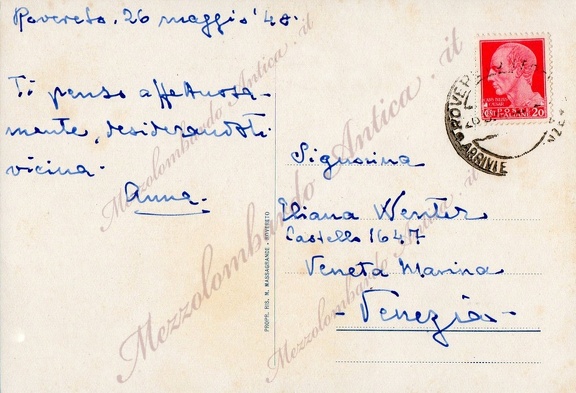 Rovereto. 26 maggio '40.
Ti penso affettuosa-
mente, desiderandoti
vicina.
Anna.
Signorina
Eliana Wenter
Castello 1647
Veneta Marina
- Venezia -
PROPR. RIS. M. MASSAGRANDE - ROVERETO
POSTE ITALIANE
CENT 20
ROVER
ARRIVI E
Mezzolombardo Antica.it
Mezzolombardo Antica.it
Mezzolombardo Antica.it